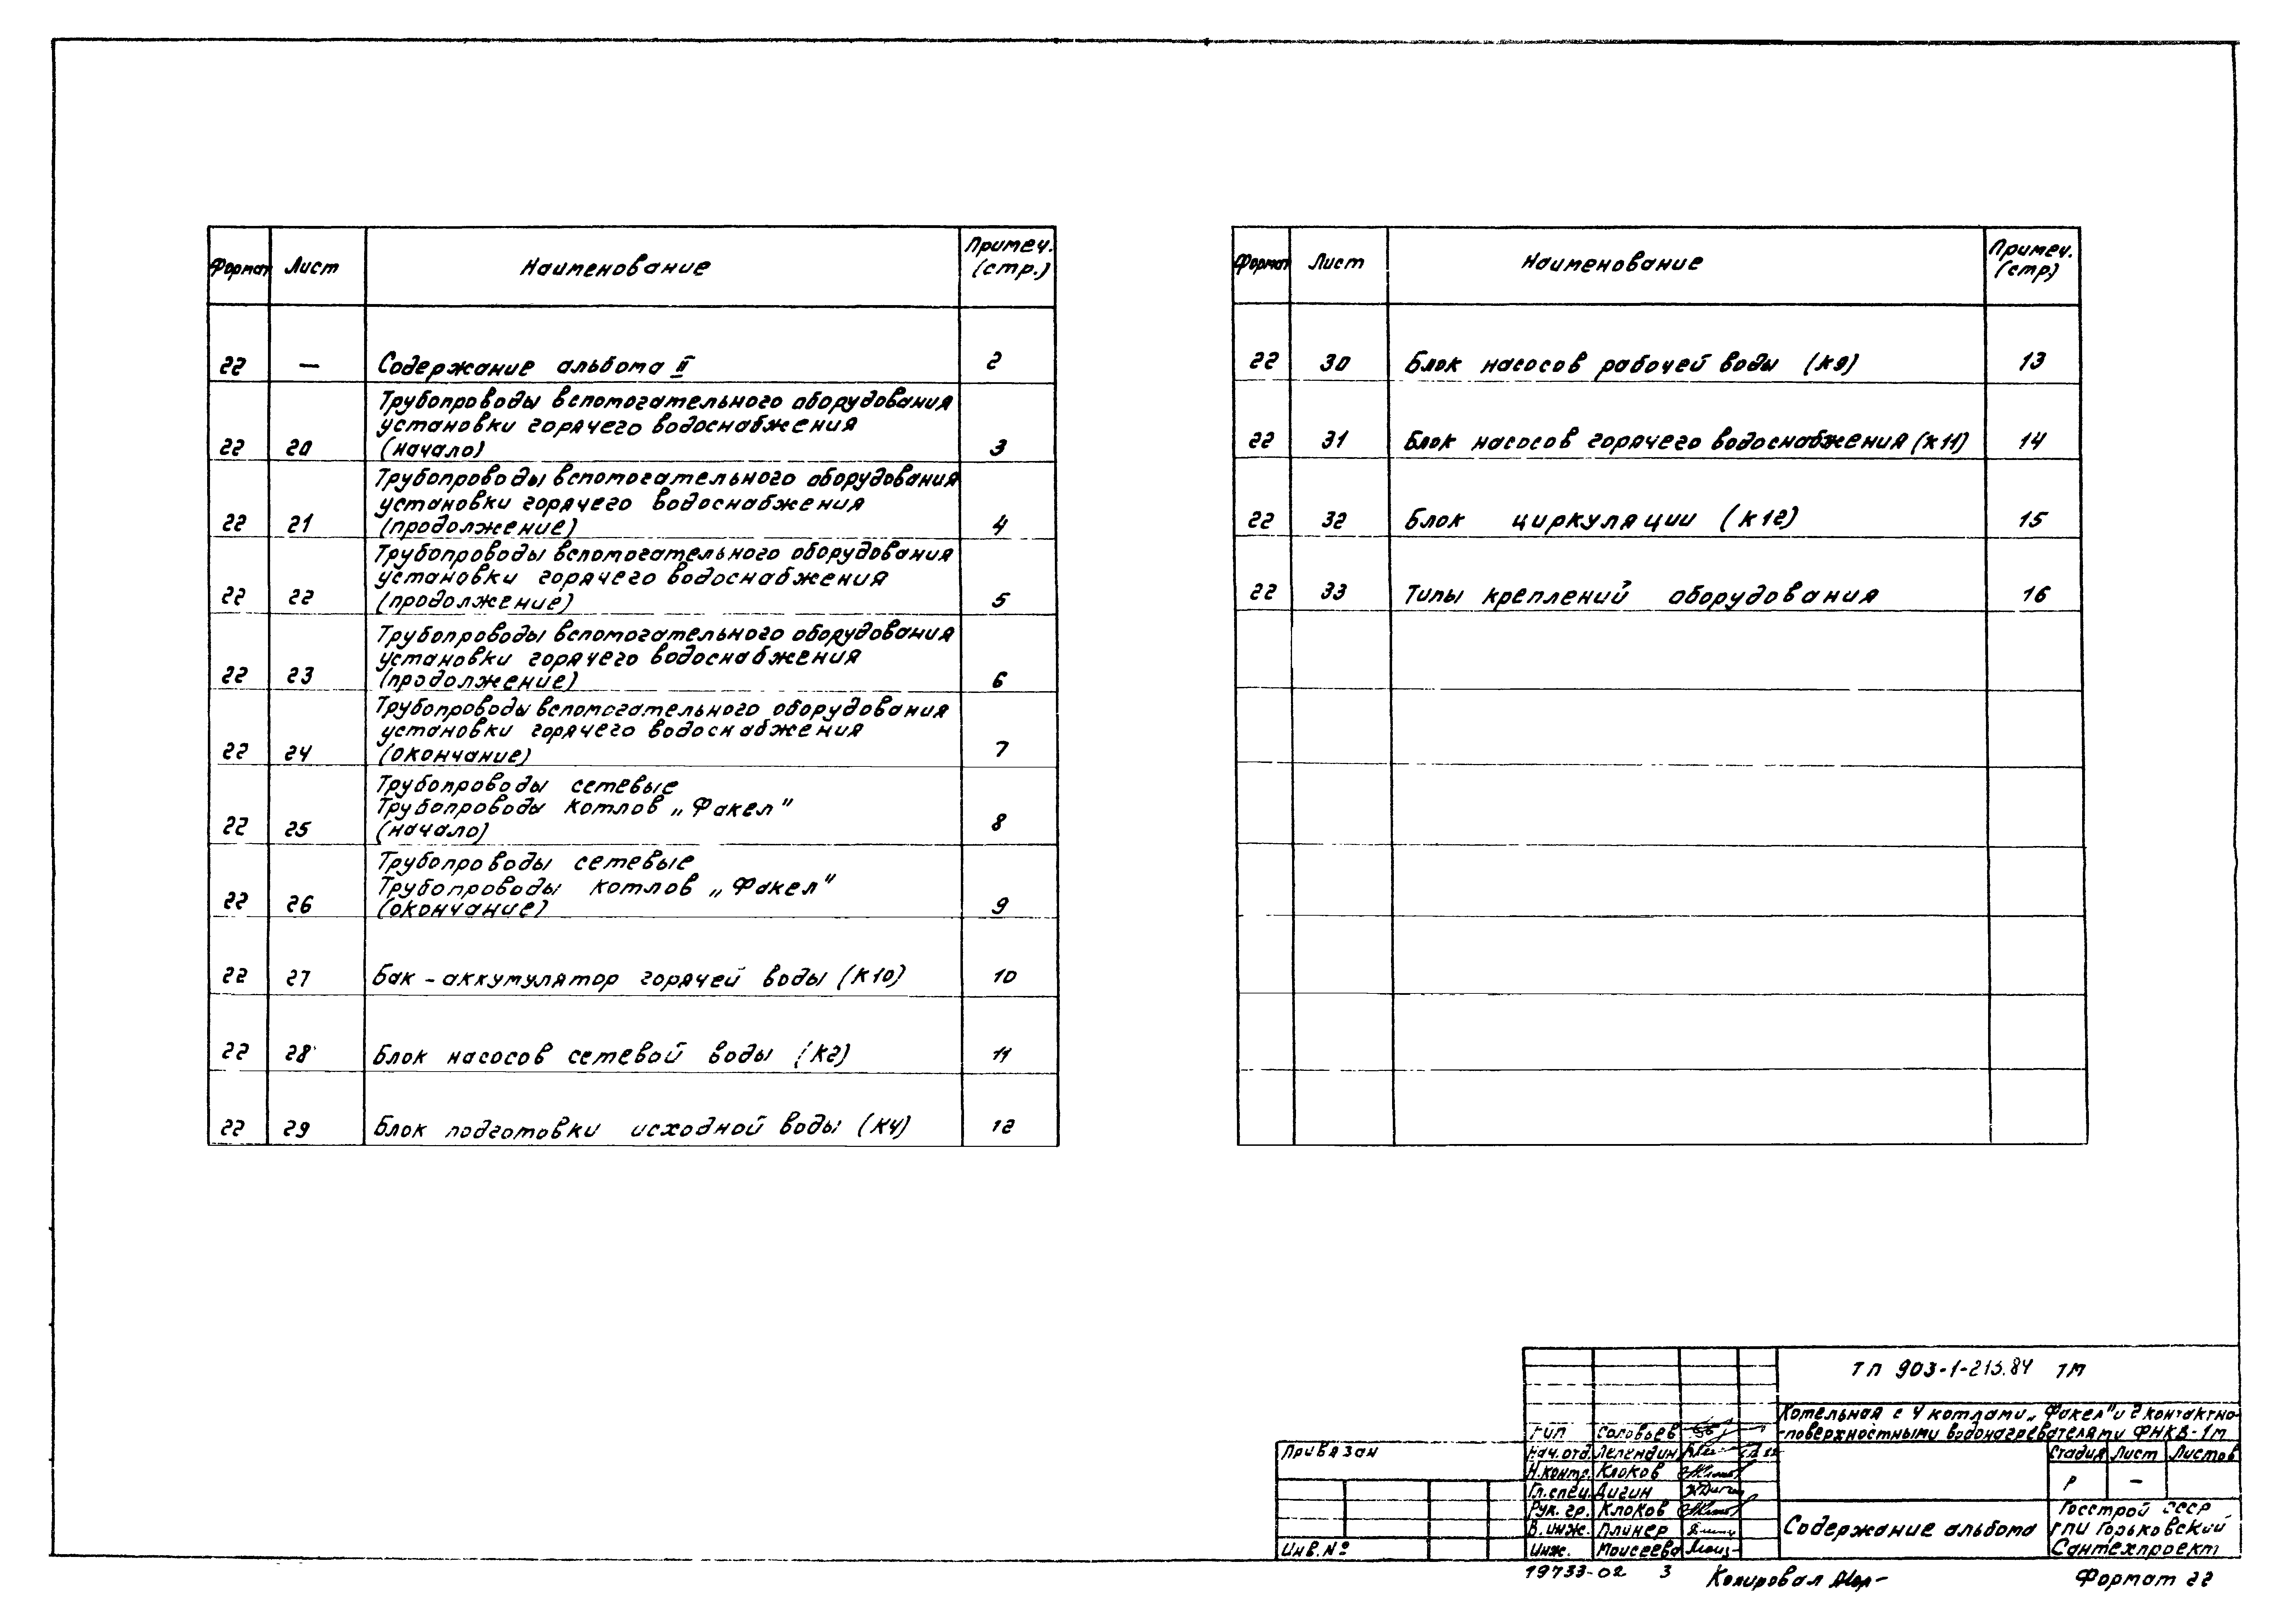 Формат Лист Наименование Примеч. (стр.)
22 — Содержание альбома II 2
Трубопроводы вспомогательного оборудования
установки горячего водоснабжения
22 20 (начало) 3
Трубопроводы вспомогательного оборудования
установки горячего водоснабжения
22 21 (продолжение) 4
Трубопроводы вспомогательного оборудования
установки горячего водоснабжения
22 22 (продолжение) 5
Трубопроводы вспомогательного оборудования
установки горячего водоснабжения
22 23 (продолжение) 6
Трубопроводы вспомогательного оборудования
установки горячего водоснабжения
22 24 (окончание) 7
Трубопроводы сетевые
Трубопроводы котлов „Факел"
22 25 (начало) 8
Трубопроводы сетевые
Трубопроводы котлов „Факел"
22 26 (окончание) 9
22 27 Бак-аккумулятор горячей воды (К10) 10
22 28 Блок насосов сетевой воды (К2) 11
22 29 Блок подготовки исходной воды (К4) 12
Формат Лист Наименование Примеч. (стр)
22 30 Блок насосов рабочей воды (К9) 13
22 31 Блок насосов горячего водоснабжения (К11) 14
22 32 Блок циркуляции (К12) 15
22 33 Типы креплений оборудования 16
ТП 903-1-215.84 ТМ
Котельная с 4 котлами „Факел" и 2 контактно-
-поверхностными водонагревателями ФНКВ-1м
Стадия Лист Листов
Р —
Содержание альбома
Госстрой СССР
ГПИ Горьковский
Сантехпроект
ГИП Соловьев
Нач.отд.
Н.контр. Клоков
Гл.спец. Дигин
Рук. гр. Клоков
В.инж. Плинер
Инж. Моисеева
Привязан
Инв.№
19733-02 3
Копировал
Формат 22